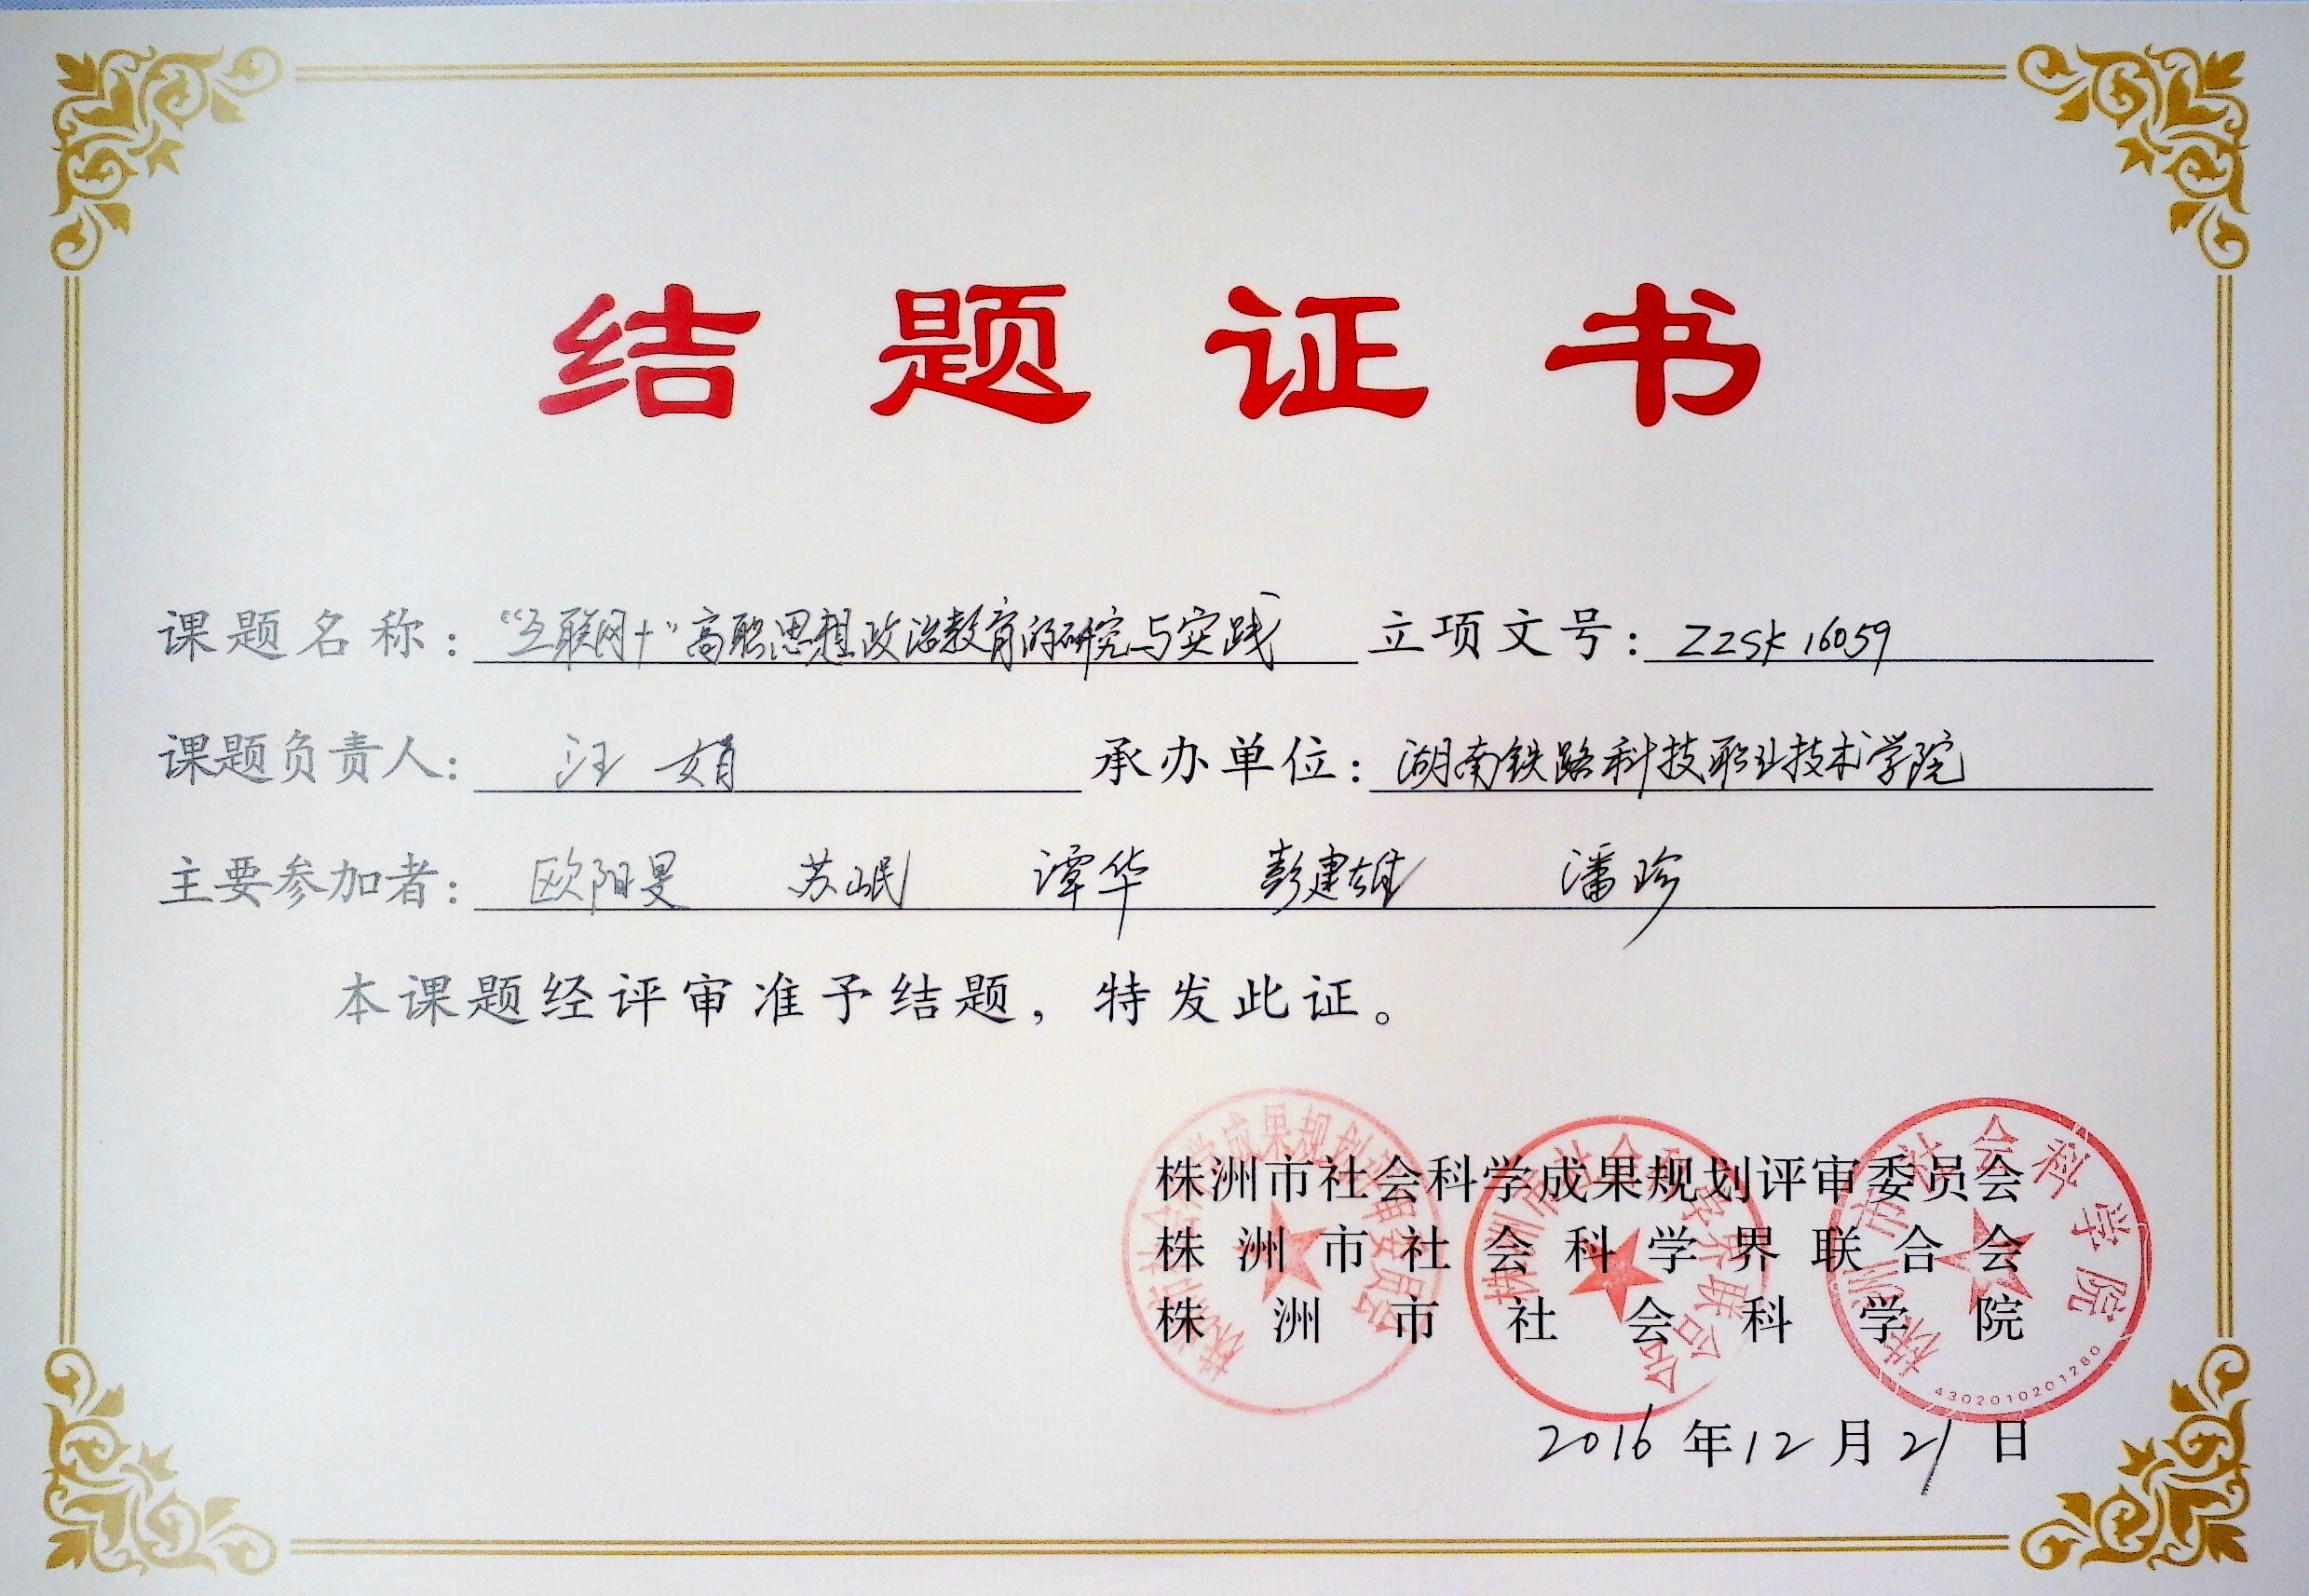 结题证书
课题名称：“互联网+”高职思想政治教育的研究与实践 立项文号：ZZSK16059
课题负责人：汪娟 承办单位：湖南铁路科技职业技术学院
主要参加者：欧阳旻 苏岷 谭华 彭建雄 潘珍
本课题经评审准予结题，特发此证。
株洲市社会科学成果规划评审委员会
株洲市社会科学界联合会
株洲市社会科学院
2016年12月21日
株洲市社会科学成果规划评审委员会
株洲市社会科学界联合会
株洲市社会科学院
4302010201280